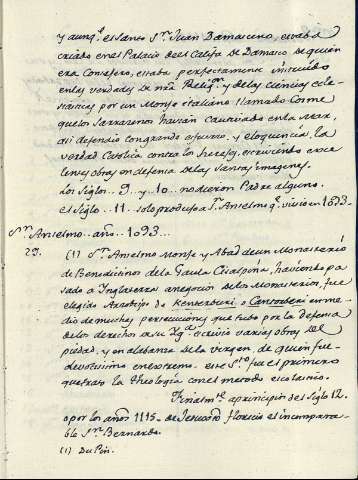 y aunq.e el Santo S.n Juan Damasceno, estaba
criado en el Palacio de el Califa de Damasco de quien
era Consejero, estaba perfectamente instruido
en las verdades de nra Relig.on y de las ciencias ecle-
siasticas por un Monje italiano llamado Cosme
que los Sarracenos havian cautivado en la Mar,
asi defendio con grande esfuerzo, y eloquencia, la
verdad Catolica contra los herejes, escriviendo exce-
lentes obras en defensa de las Santas imagenes.
Los Siglos.. 9.. y 10.. no dieron Padre alguno.
el Siglo.. 11.. solo produxo a S.n Anselmo q.e vivio en 1093..
S.n Anselmo.. año.. 1093...
29. (1) S.n Anselmo Monje y Abad de un Monasterio
de Benedictinos de la Gaula Cisalpina, haviendo pa
sado a Inglaterra a negocios de los Monasterios, fue
elegido Arzobispo de Kenterberi, o Cantorberi en me-
dio de muchas persecuciones que tubo por la defensa
de los derechos a su Yg.a escrivio varias obras de
piedad, y en alabanza de la virgen, de quien fue
devotissimo en extremo. este S.to fue el primero
que trato la Theologia con el metodo escolastico.
Finalm.te a principios del siglo 12.
o por los años 1115.. de Jesucristo florecio el incompara-
ble S.n Bernardo.
(1) Du Pin.